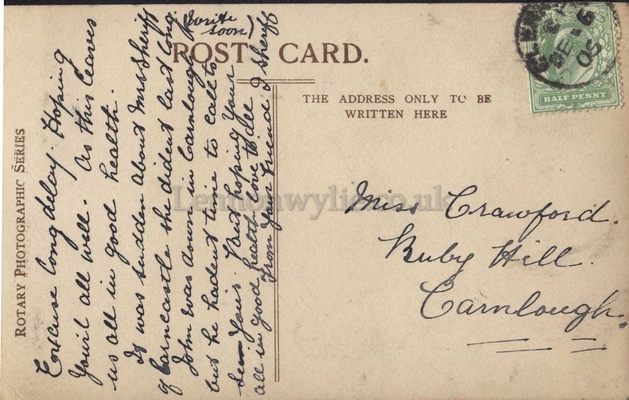 POST CARD.
THE ADDRESS ONLY TO BE
WRITTEN HERE
HALF PENNY
ROTARY PHOTOGRAPHIC SERIES
(write
soon)
Excuse long delay. Hoping
You'r all well. As this leaves
us all in good health.
It was sudden about Mrs Sheriff
of Cairncastle she dident last long.
John was down in Carnlough
but he hadent time to call to
see Yous. But hoping Your
all in good health love to
from Your Friend J Sheriff
Miss Crawford.
Ruby Hill.
Carnlough.
Lennonwylie.co.uk